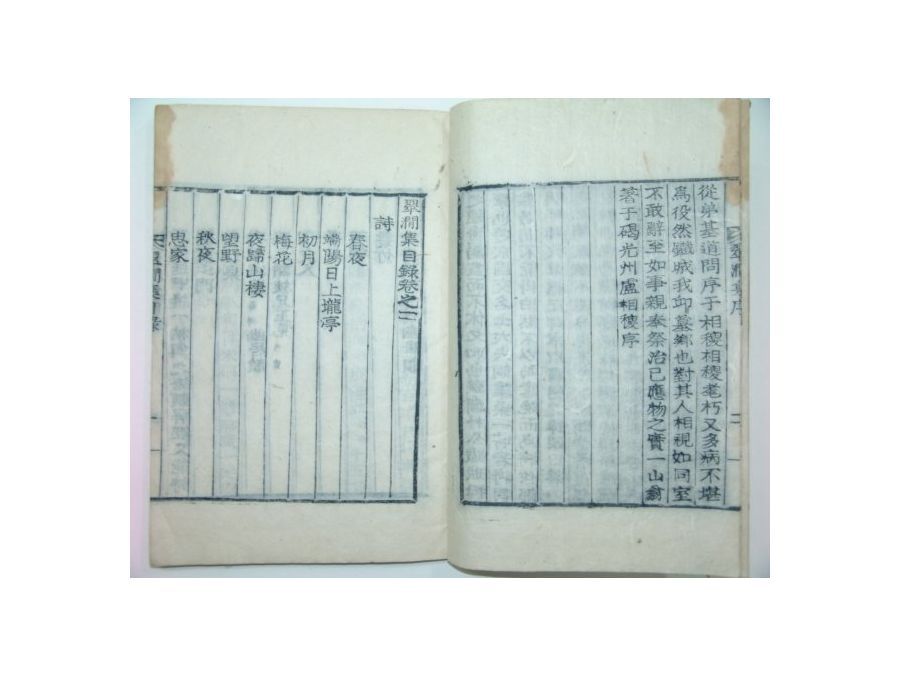 從弟基道問序于相稷相稷耄朽又多病不堪
爲役然鐵城我邱墓鄕也對其人相視如同室
不敢辭至如事親奉祭治己應物之實一山翁
著于碣光州盧相稷序
翠澗集序
二
翠澗集目錄卷之一
詩
春夜
端陽日上壠亭
初月
梅花
夜歸山樓
望野
秋夜
思家
翠澗集目錄
一